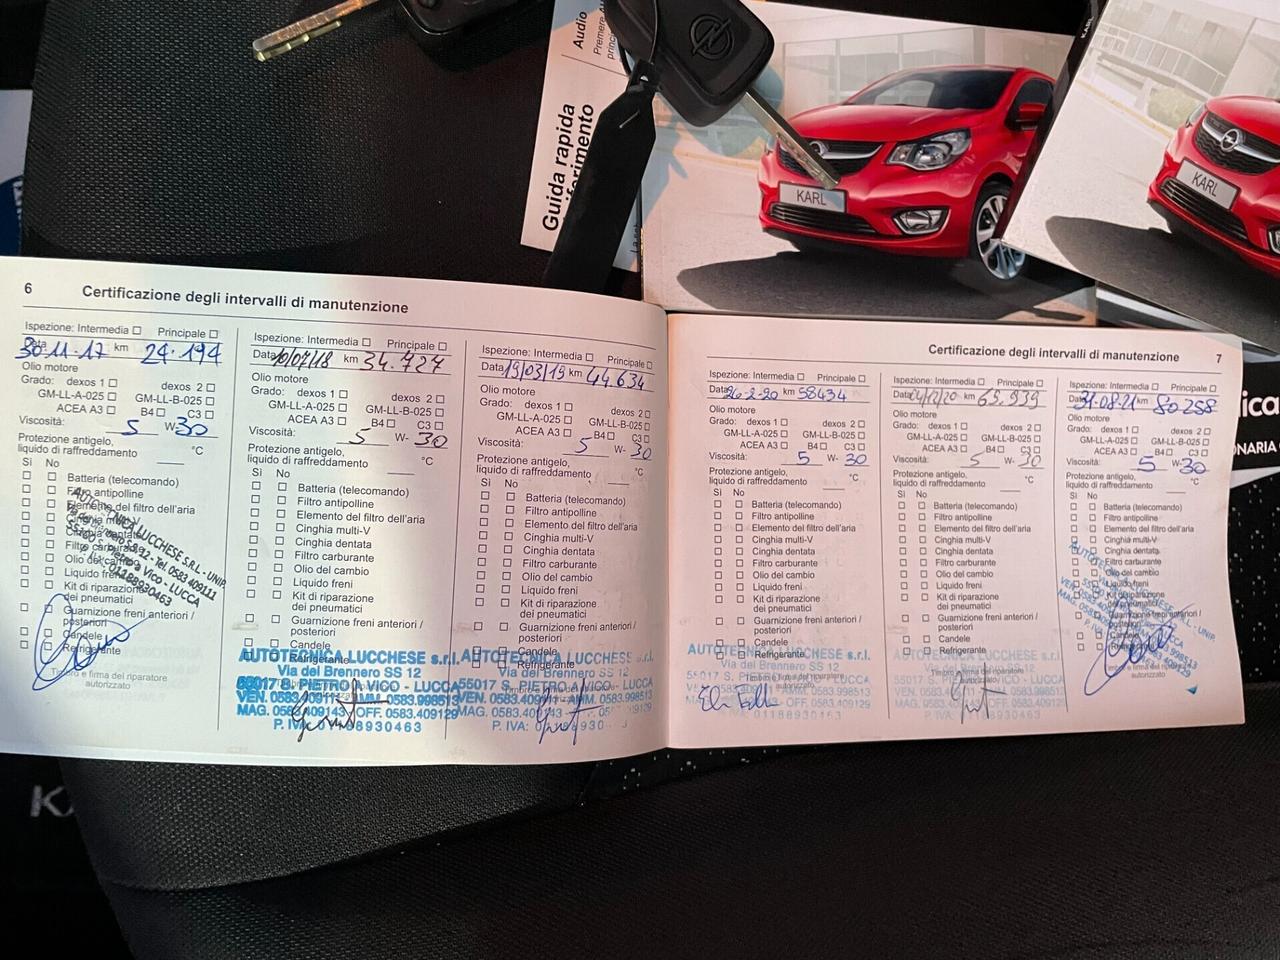 Audio
Premere
Guida rapida
KARL
KARL
KARL
ica
ONARIA
6 Certificazione degli intervalli di manutenzione
Ispezione: Intermedia ☐ Principale ☐
Data 30.11.17 km 24.194
Olio motore
Grado: dexos 1 ☐ dexos 2 ☐
GM-LL-A-025 ☐ GM-LL-B-025 ☐
ACEA A3 ☐ B4 ☐ C3 ☐
Viscosità: 5 W-30
Protezione antigelo,
liquido di raffreddamento °C
Sì No
Batteria (telecomando)
Filtro antipolline
Elemento del filtro dell'aria
Liquido freni
Kit di riparazione
dei pneumatici
Guarnizione freni anteriori /
posteriori
Candele
Refrigerante
Timbro e firma del riparatore
autorizzato
Ispezione: Intermedia ☐ Principale ☐
Data 10/07/18 km 34.727
Olio motore
Grado: dexos 1 ☐ dexos 2 ☐
GM-LL-A-025 ☐ GM-LL-B-025 ☐
ACEA A3 ☐ B4 ☐ C3 ☐
Viscosità: 5 W-30
Protezione antigelo,
liquido di raffreddamento °C
Sì No
Batteria (telecomando)
Filtro antipolline
Elemento del filtro dell'aria
Cinghia multi-V
Cinghia dentata
Filtro carburante
Olio del cambio
Liquido freni
Kit di riparazione
dei pneumatici
Guarnizione freni anteriori /
posteriori
Candele
Refrigerante
AUTOTECNICA LUCCHESE s.r.l.
Via del Brennero SS 12
55017 S. PIETRO A VICO - LUCCA
MAG. 0583.409143 - OFF. 0583.409129
Ispezione: Intermedia ☐ Principale ☐
Data 19/03/19 km 44.634
Olio motore
Grado: dexos 1 ☐ dexos 2 ☐
GM-LL-A-025 ☐ GM-LL-B-025 ☐
ACEA A3 ☐ B4 ☐ C3 ☐
Viscosità: 5 W-30
Protezione antigelo,
liquido di raffreddamento °C
Sì No
Batteria (telecomando)
Filtro antipolline
Elemento del filtro dell'aria
Cinghia multi-V
Cinghia dentata
Filtro carburante
Olio del cambio
Liquido freni
Kit di riparazione
dei pneumatici
Guarnizione freni anteriori /
posteriori
Candele
Refrigerante
AUTOTECNICA LUCCHESE s.r.l.
Via del Brennero SS 12
55017 S. PIETRO A VICO - LUCCA
Certificazione degli intervalli di manutenzione 7
Ispezione: Intermedia ☐ Principale ☐
Data 26-2-20 km 58434
Olio motore
Grado: dexos 1 ☐ dexos 2 ☐
GM-LL-A-025 ☐ GM-LL-B-025 ☐
ACEA A3 ☐ B4 ☐ C3 ☐
Viscosità: 5 W-30
Protezione antigelo,
liquido di raffreddamento °C
Sì No
Batteria (telecomando)
Filtro antipolline
Elemento del filtro dell'aria
Cinghia multi-V
Cinghia dentata
Filtro carburante
Olio del cambio
Liquido freni
Kit di riparazione
dei pneumatici
Guarnizione freni anteriori /
posteriori
Candele
Refrigerante
Ispezione: Intermedia ☐ Principale ☐
Data km 65.939
Olio motore
Grado: dexos 1 ☐ dexos 2 ☐
GM-LL-A-025 ☐ GM-LL-B-025 ☐
ACEA A3 ☐ B4 ☐ C3 ☐
Viscosità: 5 W-30
Protezione antigelo,
liquido di raffreddamento °C
Sì No
Batteria (telecomando)
Filtro antipolline
Elemento del filtro dell'aria
Cinghia multi-V
Cinghia dentata
Filtro carburante
Olio del cambio
Liquido freni
Kit di riparazione
dei pneumatici
Guarnizione freni anteriori /
posteriori
Candele
Refrigerante
Ispezione: Intermedia ☐ Principale ☐
Data 31.08.21 km 80258
Olio motore
Grado: dexos 1 ☐ dexos 2 ☐
GM-LL-A-025 ☐ GM-LL-B-025 ☐
ACEA A3 ☐ B4 ☐ C3 ☐
Viscosità: 5 W-30
Protezione antigelo,
liquido di raffreddamento °C
Sì No
Batteria (telecomando)
Filtro antipolline
Elemento del filtro dell'aria
Cinghia multi-V
Cinghia dentata
Filtro carburante
Olio del cambio
Liquido freni